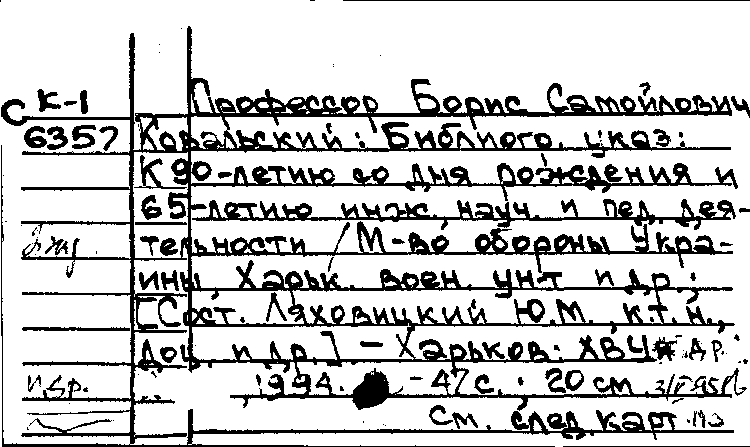 К-1 Профессор Борис Самойлович
С 6357 Ковальский: Библиогр. указ:
К 90-летию со дня рождения и
65-летию инж., науч. и пед. дея-
тельности / М-во обороны Укра-
ины, Харьк. воен. ун-т и др.;
[Сост. Ляховицкий Ю.М., к.т.н.,
доц. и др.]. - Харьков: ХВУ и др.
и др. , 1994. - 47 с.; 20 см
См. след. карт.